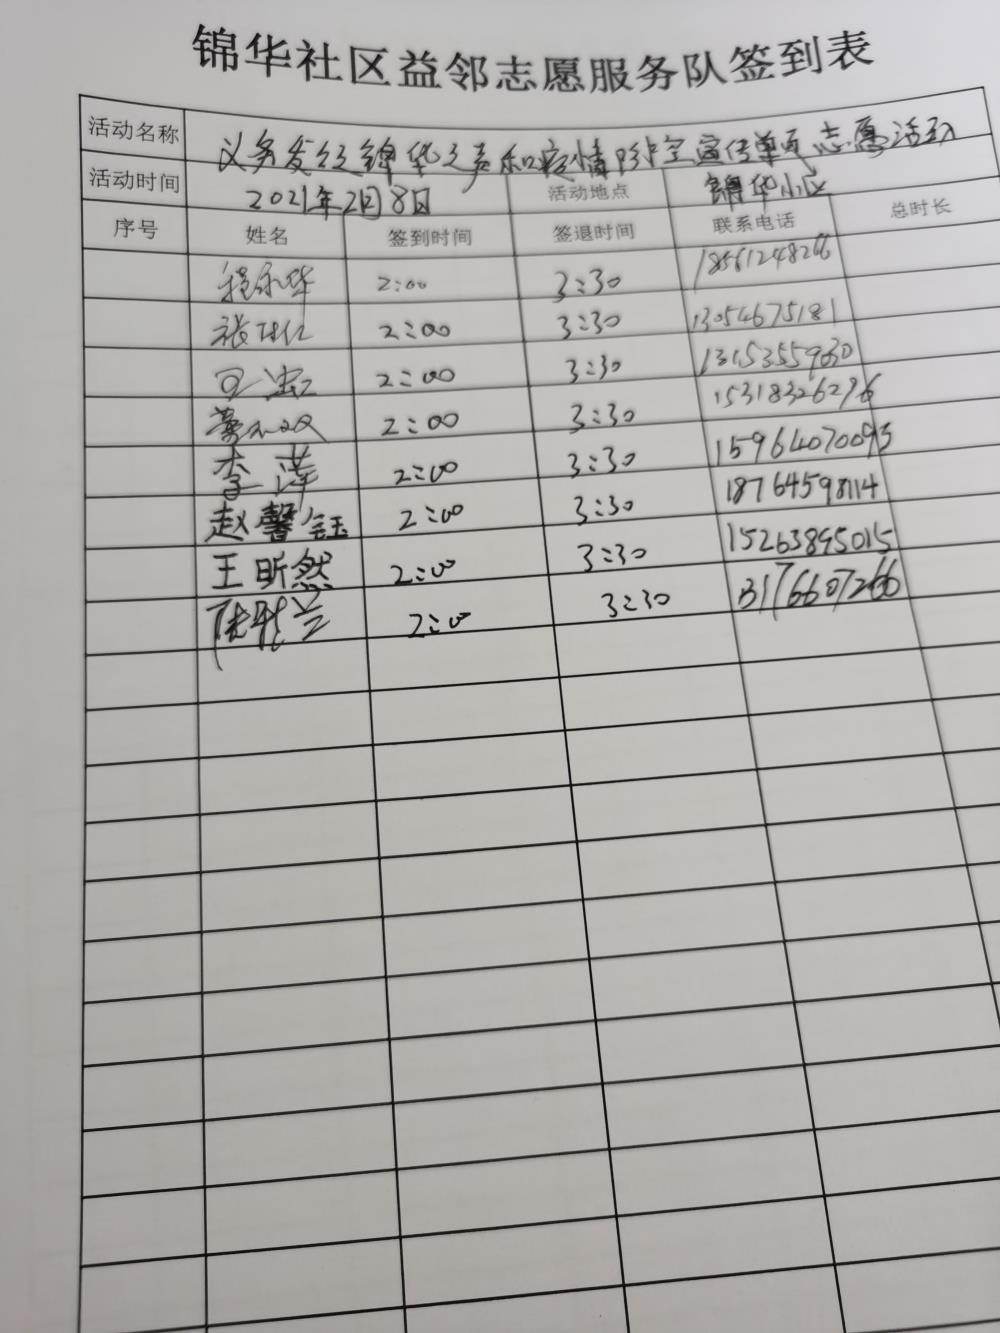 锦华社区益邻志愿服务队签到表
活动名称 义务发放锦华之声和疫情防控宣传单页志愿活动
活动时间 2021年2月8日 活动地点 锦华小区
序号 姓名 签到时间 签退时间 联系电话 总时长
2:00 3:30 18561248266
2:00 3:30 13054675181
2:00 3:30
2:00 3:30 15318326276
李萍 2:00 3:30 15964070093
赵馨钰 2:00 3:30 18764598114
王昕然 2:00 3:30 15263895015
2:00 3:30 13176607266